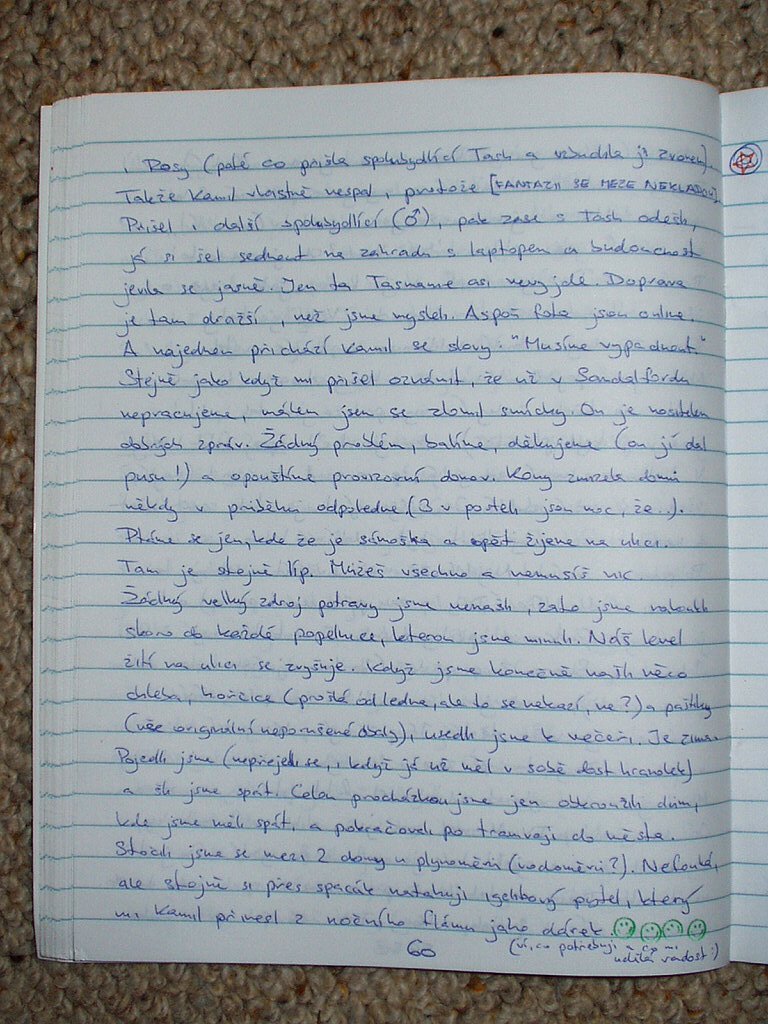 i Rosy (poté co přišla spolubydlící Tash a vzbudila ji zvonem).
Takže Kamil vlastně nespal, protože [FANTAZII SE MEZE NEKLADOU].
Přišel i další spolubydlící (♂), pak zase s Tash odešli,
já si šel sednout na zahradu s laptopem a budoucnost
jevila se jasně. Jen ta Tasmanie asi nevyjde. Doprava
je tam dražší, než jsme mysleli. Aspoň fota jsou online.
A najednou přichází Kamil se slovy: "Musíme vypadnout."
Stejně jako když mi přišel oznámit, že už v Sandalfordu
nepracujeme, málem jsem se zlomil smíchy. On je nositelem
dobrých zpráv. Žádný problém, balíme, děkujeme (on jí dal
pusu!) a opouštíme provizorní domov. Kony zmizela domů
někdy v průběhu odpoledne (3 v posteli jsou moc, že..).
Ptáme se jen, kde že je sámoška a opět žijeme na ulici.
Tam je stejně líp. Můžeš všechno a nemusíš nic.
Žádný velký zdroj potravy jsme nenašli, zato jsme nakoukli
skoro do každé popelnice, kterou jsme minuli. Náš level
žití na ulici se zvyšuje. Když jsme konečně našli něco
chleba, hořčice (prošlá od ledna, ale to se nekazí, ne?) a paštiky
(vše originální neporušené obaly), usedli jsme k večeři. Je zima.
Pojedli jsme (nepřejedli se, i když já už měl v sobě dost hranolek)
a šli jsme spát. Celou procházkou jsme jen obkroužili dům,
kde jsme měli spát, a pokračovali po tramvaji do města.
Stočili jsme se mezi 2 domy u plynoměru (vodoměru?). Nefouká,
ale stejně si přes spacák natahuji igelitový pytel, který
mi Kamil přinesl z nočního flámu jako dárek.
(ví, co potřebuji a co mi
udělá radost :)
60